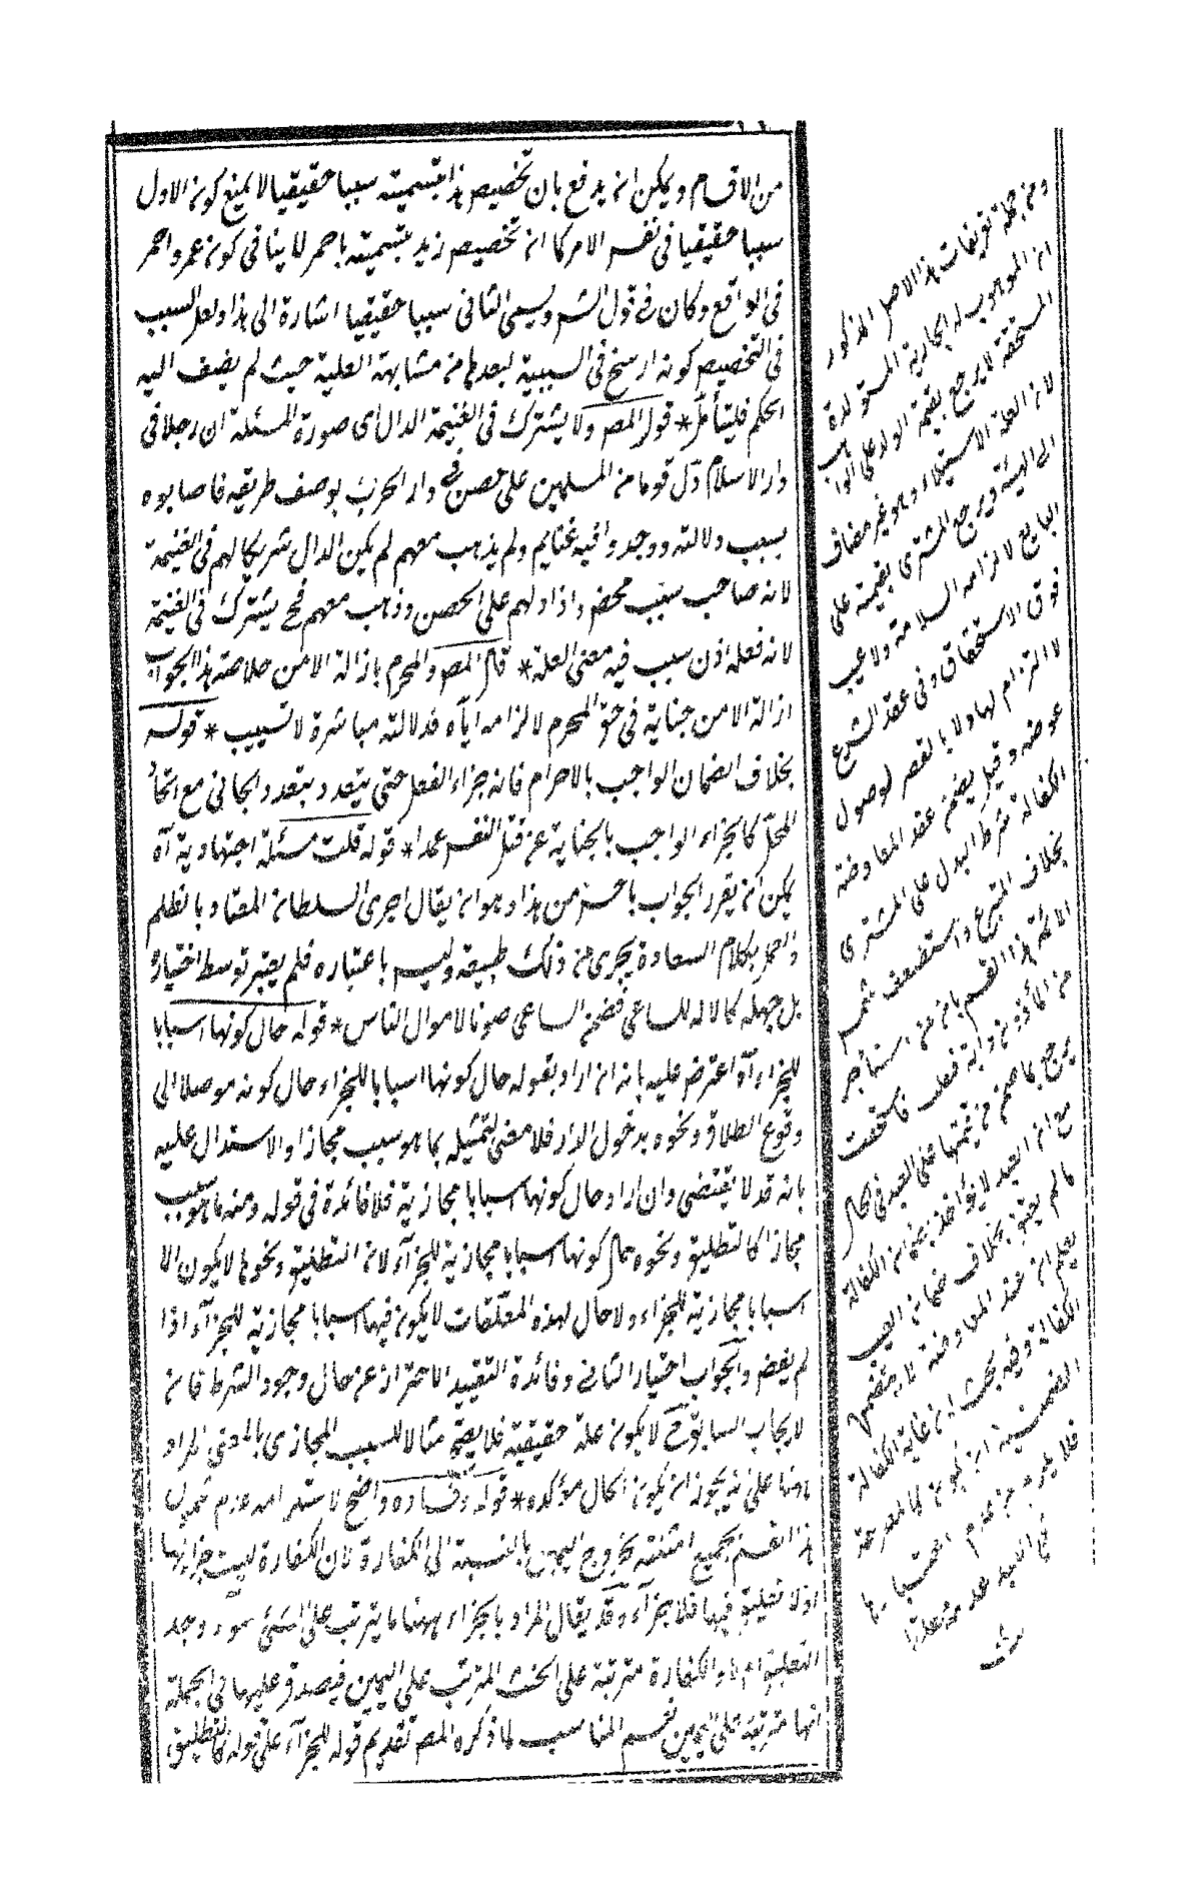 من الاقسام ويمكن ان يدفع بان تخصيص هذا بتسميته سببا حقيقيا لا يمنع كون الاول
سببا حقيقيا فى نفس الامر كما ان تخصيص زيد بتسميته باحمر لا ينافى كون عمرو احمر
فى الواقع وكان فى قول الشم ويسمى الثانى سببا حقيقيا اشارة الى هذا ولعل السبب
فى التخصيص كونه ارسخ فى السببية لبعدها من مشابهة العلية حيث لم يضف اليه
الحكم فليتأمل * قول المص ولا يشترك فى الغنيمة الدال اى صورة المسئلة ان رجلا فى
دار الاسلام دل قوما من المسلمين على حصن فى دار الحرب بوصف طريقه فاصابوه
بسبب دلالته ووجدوا فيه غنايم ولم يذهب معهم لم يكن الدال شريكا لهم فى الغنيمة
لانه صاحب سبب محض واذا دلهم على الحصن وذهب معهم فح يشترك فى الغنيمة
لانه فعله اذن سبب فيه معنى العلة * قال المص والمحرم بازالة الامن خلاصة هذا الجواب
ازالة الامن جناية فى حق المحرم لالزامه اياه فدلالته مباشرة لا تسبيب * قوله
بخلاف الضمان الواجب بالاحرام فانه جزاء الفعل حتى يتعدد بتعدد الجانى مع اتحاد
المحل كالجزاء الواجب بالجناية عن قتل النفس عمدا * قوله قلت مسئلة اجتهادية اه
يمكن ان يقرر الجواب باحسن من هذا وهو ان يقال اجرى السلطان المعتاد بالظلم
والعمل بكلام السعادة يجرى من ذلك طبيعة وليس باعتباره فلم يعتبر توسط اختياره
بل جهله كالاله للساعى فضمن الساعى صونا لاموال الناس * قوله حال كونها اسبابا
للجزاء اه اعترض عليه بانه ان اراد بقوله حال كونها اسبابا للجزاء حال كونه موصلا الى
وقوع الطلاق ونحوه بدخول الدار فلا معنى لتمثيله بما هو سبب مجازا والاستدلال عليه
بانه قد لا يقتضى وان اراد حال كونها اسبابا مجازية فلا فائدة فى قوله ومنه ما هو سبب
مجازا كالتطليق ونحوه حال كونها اسبابا مجازية للجزآء لان التطليق ونحوها لا يكون الا
اسبابا مجازية للجزاء ولا حال لهذه المعلقات لا يكون فيها اسبابا مجازية للجزآء اذا
لم يفض والجواب اختيار الثانى وفائدة التقييد الاحتراز عن حال وجود الشرط فان
لايجاب السابق ح لا يكون علة حقيقية فلا يصح مثالا للسبب المجازى بالمعنى المراد
ههنا على انه يجوز ان يكون الحال مؤكده * قوله وفساده واضح لاستلزامه عدم شمول
هذا القسم بجميع امثلته بخروج اليمين بالنسبة الى الكفارة لان الكفارة ليست جزاءها
اذ لا تعليق فيها فلا جزآء وقد يقال المراد بالجزاء ههنا ما يترتب على الشئ سواء وجد
التعليق ام لا والكفارة مترتبة على الحنث المترتب على اليمين فيصدق عليها فى الجملة
انها مترتبة على اليمين نعم المناسب لما ذكره المص تقديم قوله للجزآء على قوله كالتطليق
ومن جملة تفريعات هذا الاصل المذكور
ان الموهوب له الجارية المستولدة
المستحقة لا يرجع بقيمة الولد على الواهب
لان العلة الاستيلاء وهو غير مضاف
الى الهبة ويرجع المشترى بقيمته على
البايع لالزامه السلامة ولا عيب
فوق الاستحقاق وفى عقد الشرع
لا التزام لها ولا بالقصر لوصول
عوضه وقيل يضمن عقد المعاوضة
الكفالة شرط البدل على المشترى
بخلاف المتبرع واستضعف شمس
الائمة هذا القسم بان من استأجر
يرجع بما ضمن من قيمتها على العبد فى الحال
مع ان العبد لا يؤاخذ بضمان الكفالة
ما لم يعتق بخلاف ضمان العيب
يعلم ان عقد المعاوضة لا يتضمن
الكفالة وفيه بحث ان غاية الكفالة